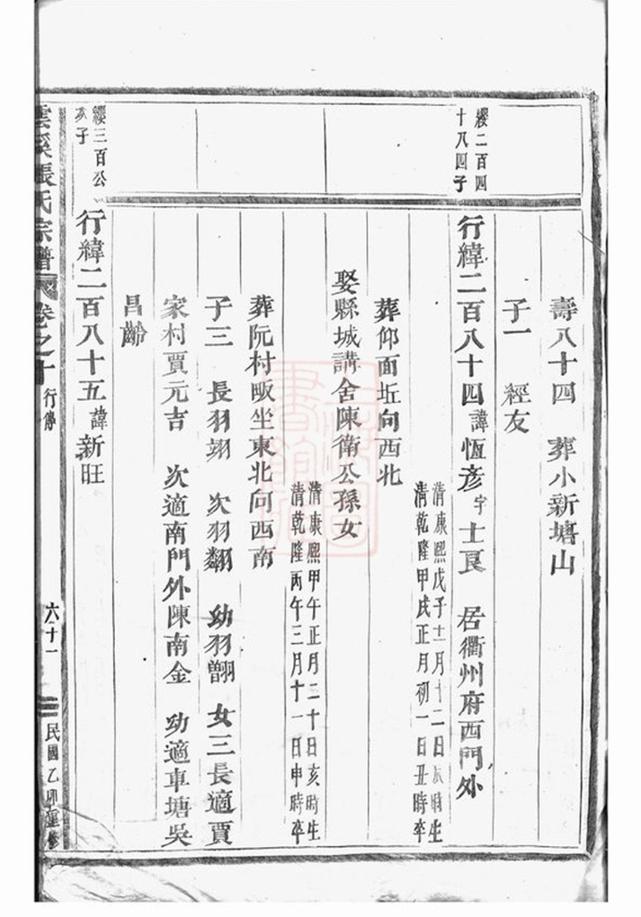 壽八十四 葬小新塘山
子一 經友
纓二百四
十八四子
行緯二百八十四諱恆彥字士良 居衢州府西門外
清康熙戊子十一月十二日 時生
清乾隆甲戌正月初一日丑時卒
葬仰面坵向西北
娶縣城講舍陳衛公孫女
清康熙甲午正月二十日亥時生
清乾隆丙午三月十一日申時卒
葬阮村畈坐東北向西南
子三 長羽翊 次羽翻 幼羽 女三長適賈
家村賈元吉 次適南門外陳南金 幼適車塘吳
昌齡
纓三百公
子
行緯二百八十五諱新旺
雲溪張氏宗譜 卷之十 行傳 六十一 民國乙卯重修